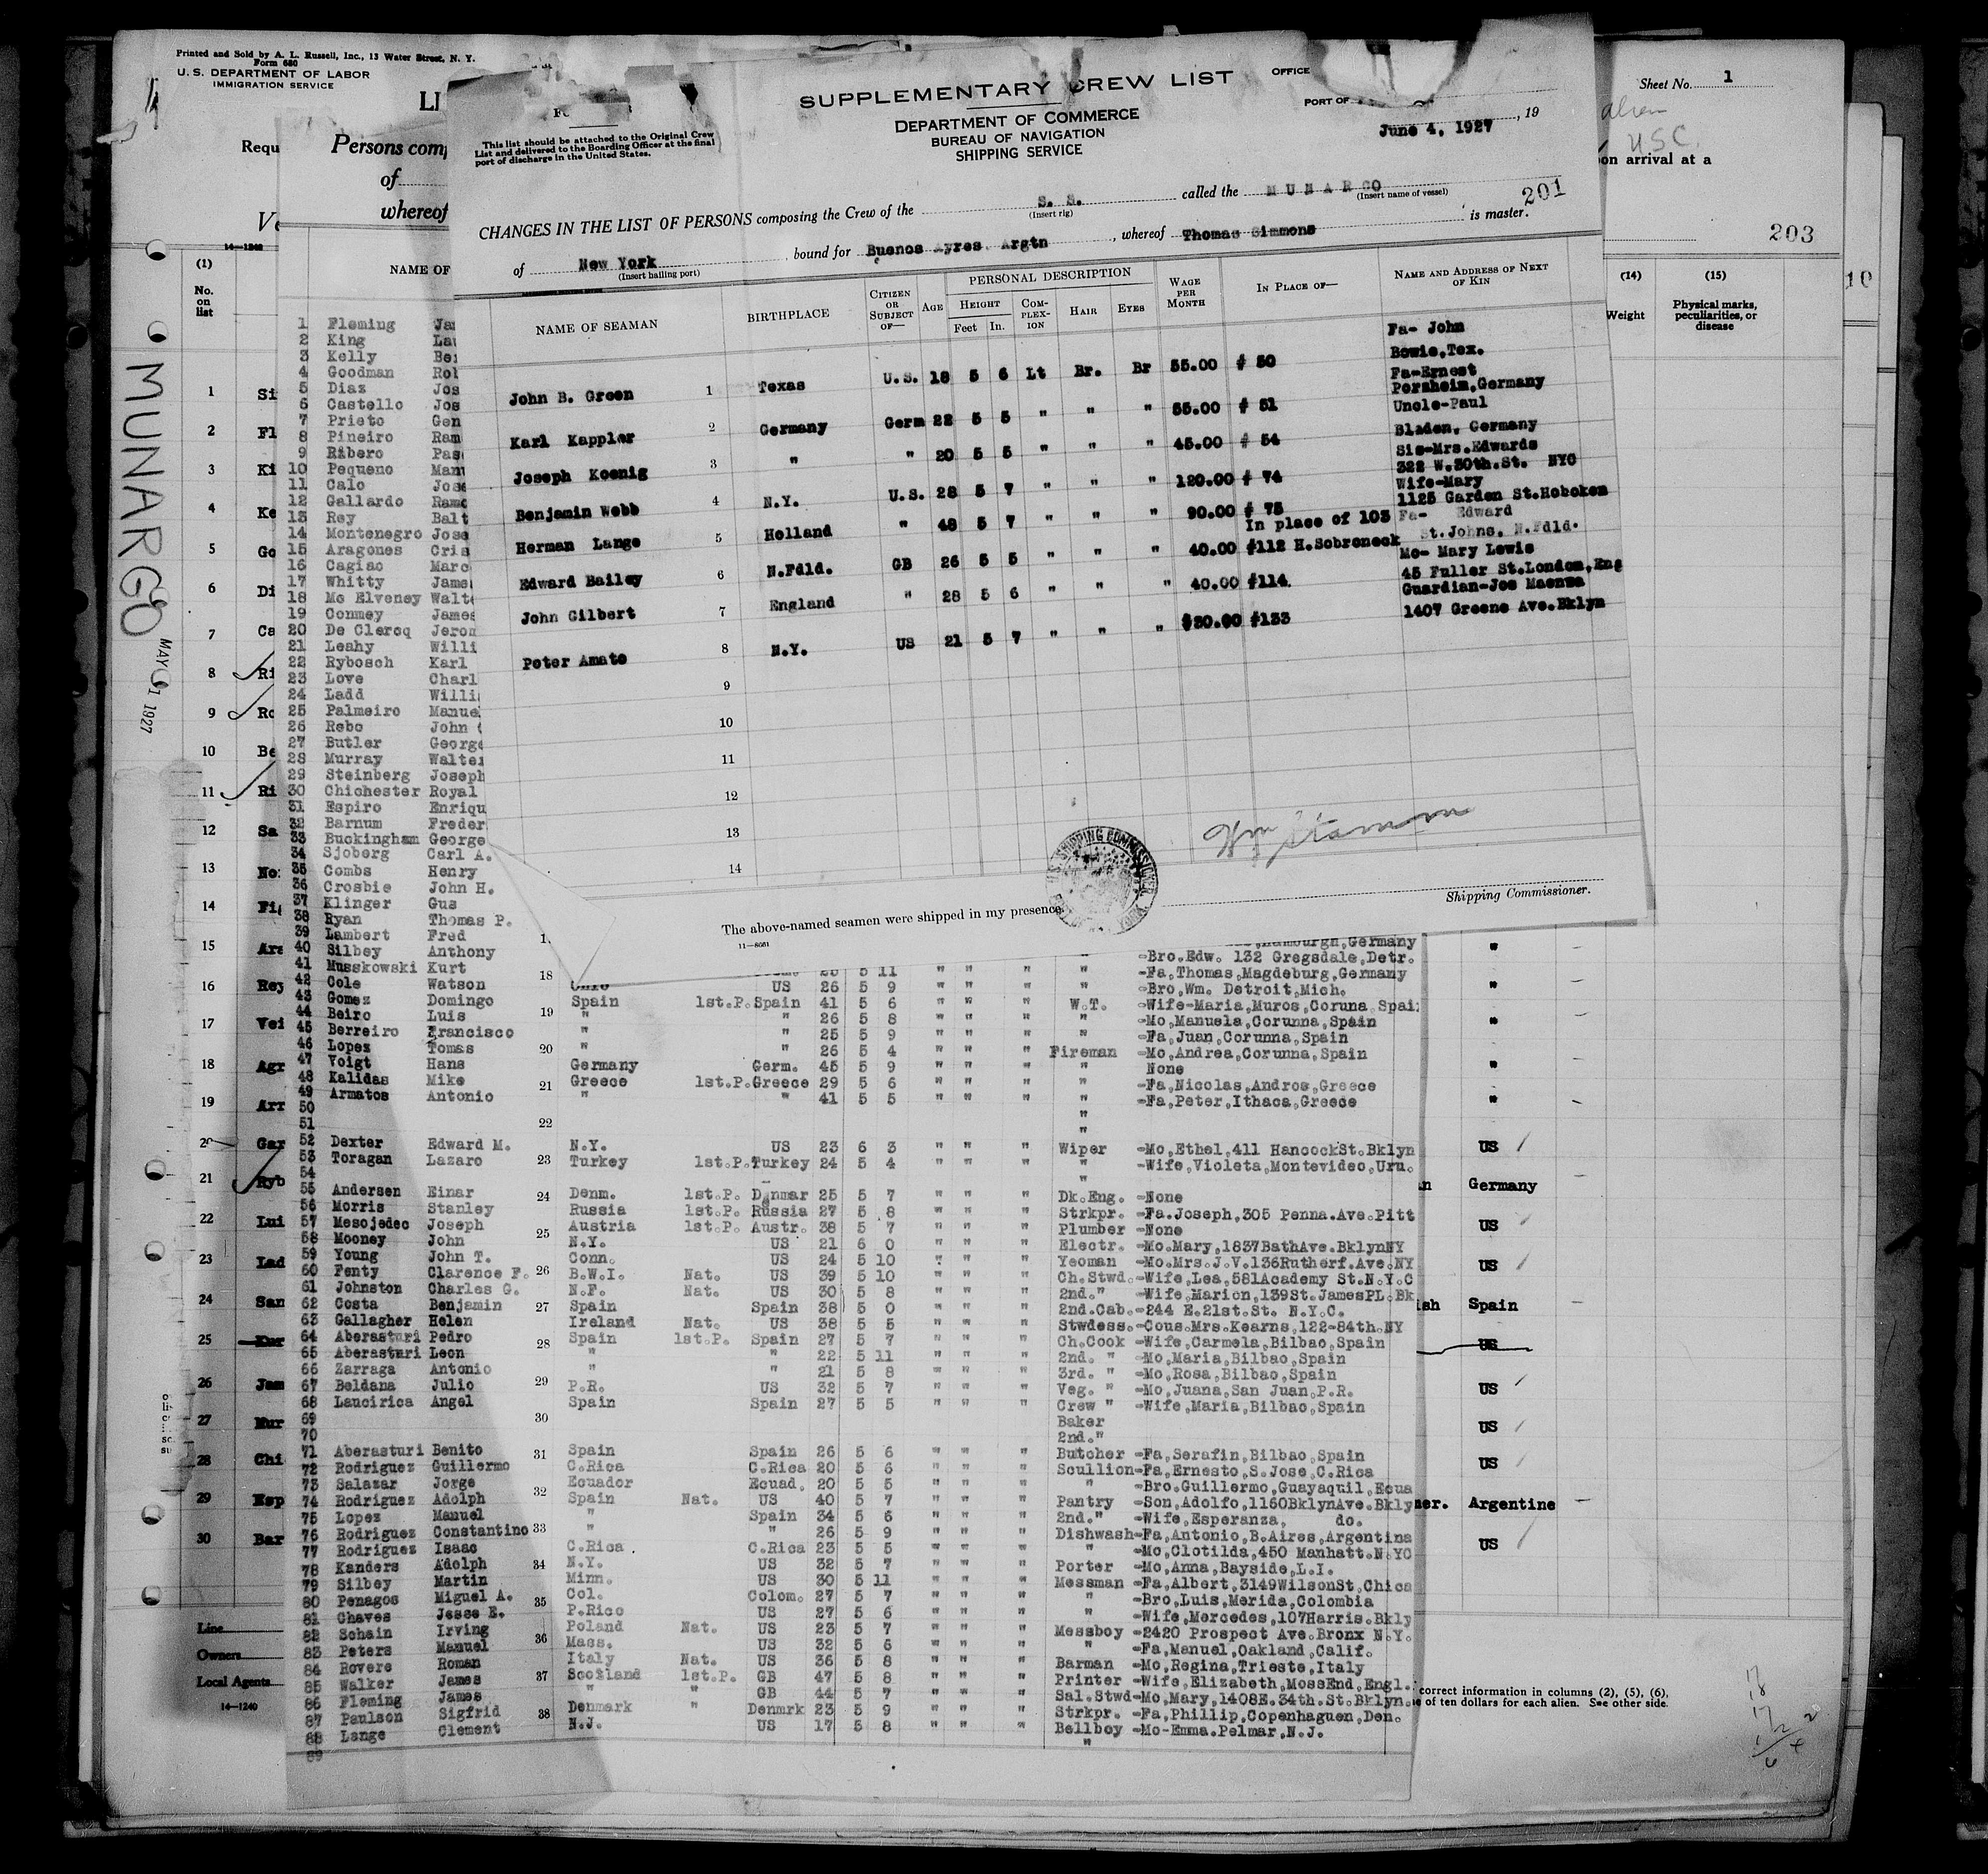 Printed and Sold by A. L. Russell, Inc., 13 Water Street, N. Y.
Form 680
U. S. DEPARTMENT OF LABOR
IMMIGRATION SERVICE
Sheet No. 1
alien
USC
on arrival at a
203
10
LI
Requ
Persons comp
of
whereof
14—1240
NAME OF
(1)
No.
on
list
(14)
Weight
(15)
Physical marks,
peculiarities, or
disease
MUNARGO
MAY 1 1927
This list should be attached to the Original Crew
List and delivered to the Boarding Officer at the final
port of discharge in the United States.
SUPPLEMENTARY CREW LIST
DEPARTMENT OF COMMERCE
BUREAU OF NAVIGATION
SHIPPING SERVICE
OFFICE
PORT OF
June 4, 1927, 19
201
CHANGES IN THE LIST OF PERSONS composing the Crew of the S. S. called the MUNARGO
(Insert rig) (Insert name of vessel)
of New York, bound for Buenos Ayres Argtn, whereof Thomas Simmons is master.
(Insert hailing port)
NAME OF SEAMAN
BIRTHPLACE
CITIZEN OR SUBJECT OF—
AGE
PERSONAL DESCRIPTION
HEIGHT
Feet In.
COM-PLEX-ION
HAIR
EYES
WAGE PER MONTH
IN PLACE OF—
NAME AND ADDRESS OF NEXT OF KIN
John B. Green 1 Texas U.S. 18 5 6 Lt Br. Br 55.00 # 50 Fa- John Bowie,Tex.
Karl Kappler 2 Germany Germ 22 5 5 " " " 55.00 # 51 Fa-Ernest Porzheim,Germany
Joseph Koenig 3 " " 20 5 5 " " " 45.00 # 54 Uncle-Paul Bladen, Germany
Benjamin Webb 4 N.Y. U.S. 28 5 7 " " " 120.00 # 74 Sis-Mrs.Edwards 322 W.30th.St. NYC
Herman Lange 5 Holland " 48 5 7 " " " 90.00 # 75 Wife-Mary 1125 Garden St.Hoboken
Edward Bailey 6 N.Fdld. GB 26 5 5 " " " 40.00 In place of 103 #112 H.Sobroneck Fa- Edward St.Johns, N.Fdld.
John Gilbert 7 England " 28 5 6 " " " 40.00 #114 Mo- Mary Lewis 45 Fuller St.London,Eng
Peter Amato 8 N.Y. US 21 5 7 " " " $30.00 #133 Guardian-Joe Maenza 1407 Greene Ave.Bklyn
9
10
11
12
13
14
Wm Stamm
Shipping Commissioner.
The above-named seamen were shipped in my presence
11—8661
1 Fleming Ja
2 King La
3 Kelly Be
4 Goodman Ro
5 Diaz Jos
6 Castello Jos
7 Prieto Gen
8 Pineiro Ram
9 Ribero Pas
10 Pequeno Manu
11 Calo Jose
12 Gallardo Ramo
13 Rey Balt
14 Montenegro Jose
15 Aragones Cris
16 Cagiao Marc
17 Whitty Jame
18 Mc Elveney Walte
19 Conmey James
20 De Clercq Jerom
21 Leahy Willi
22 Rybosch Karl
23 Love Charl
24 Ladd Willi
25 Palmeiro Manue
26 Rebo John
27 Butler George
28 Murray Walter
29 Steinberg Joseph
30 Chichester Royal
31 Espiro Enriqu
32 Barnum Freder
33 Buckingham George
34 Sjoberg Carl A.
35 Combs Henry
36 Crosbie John H.
37 Klinger Gus
38 Ryan Thomas P.
39 Lambert Fred
40 Silbey Anthony ,Hamburgh,Germany
41 Musskowski Kurt -Bro.Edw. 132 Gregsdale,Detr.
-Fa,Thomas,Magdeburg,Germany
42 Cole Watson Ohio US 26 5 9 " " " " -Bro,Wm. Detroit,Mich.
43 Gomez Domingo Spain 1st.P.Spain 41 5 6 " " " W.T. -Wife-Maria,Muros,Coruna,Spai
44 Beiro Luis " " 26 5 8 " " " " -Mo,Manuela,Corunna,Spain
45 Berreiro Francisco " " 25 5 9 " " " " -Fa,Juan,Corunna,Spain
46 Lopez Tomas " " 26 5 4 " " " Fireman -Mo,Andrea,Corunna,Spain
47 Voigt Hans Germany Germ. 45 5 9 " " " " None
48 Kalidas Mike Greece 1st.P.Greece 29 5 6 " " " " -Fa,Nicolas,Andros,Greece
49 Armatos Antonio " " 41 5 5 " " " " -Fa,Peter,Ithaca,Greece
50 "
51 "
52 Dexter Edward M. N.Y. US 23 6 3 " " " Wiper -Mo,Ethel,411 HancockSt.Bklyn
53 Toragan Lazaro Turkey 1st.P.Turkey 24 5 4 " " " " -Wife,Violeta,Montevideo,Uru.
54 "
55 Andersen Einar Denm. 1st.P. Denmar 25 5 7 " " " Dk.Eng. -None
56 Morris Stanley Russia 1st.P. Russia 27 5 8 " " " Strkpr. -Fa.Joseph,305 Penna.Ave.Pitt
57 Mesojedec Joseph Austria 1st.P. Austr. 38 5 7 " " " Plumber -None
58 Mooney John N.Y. US 21 6 0 " " " Electr. -Mo.Mary,1837BathAve.BklynNY
59 Young John T. Conn. US 24 5 10 " " " Yeoman -Mo.Mrs.J.V.136Rutherf.Ave.NY
60 Fenty Clarence F. B.W.I. Nat. US 39 5 10 " " " Ch.Stwd.-Wife,Lea,581Academy St.N.Y.C
61 Johnston Charles G. N.F. Nat. US 30 5 8 " " " 2nd." -Wife,Marion,139St.JamesPL.Bk
62 Costa Benjamin Spain Spain 38 5 0 " " " 2nd.Cab.-244 E.21st.St. N.Y.C.
63 Gallagher Helen Ireland Nat. US 38 5 5 " " " Stwdess.-Cous.Mrs.Kearns,122-84th.NY
64 Aberasturi Pedro Spain 1st.P. Spain 27 5 7 " " " Ch.Cook -Wife,Carmela,Bilbao,Spain
65 Aberasturi Leon " " 22 5 11 " " " 2nd. " -Mo,Maria,Bilbao,Spain
66 Zarraga Antonio " " 21 5 8 " " " 3rd. " -Mo,Rosa,Bilbao,Spain
67 Beldana Julio P.R. US 32 5 7 " " " Veg. " -Mo,Juana,San Juan,P.R.
68 Laucirica Angel Spain Spain 27 5 5 " " " Crew " -Wife,Maria,Bilbao,Spain
69 Baker
70 2nd."
71 Aberasturi Benito Spain Spain 26 5 6 " " " Butcher -Fa,Serafin,Bilbao,Spain
72 Rodriguez Guillermo C.Rica C.Rica 20 5 6 " " " Scullion-Fa,Ernesto,S.Jose,C.Rica
73 Salazar Jorge Ecuador Ecuad. 20 5 5 " " " " -Bro.Guillermo,Guayaquil,Ecua
74 Rodriguez Adolph Spain Nat. US 40 5 7 " " " Pantry -Son,Adolfo,1160BklynAve.Bkly
75 Lopez Manuel " Spain 34 5 6 " " " 2nd." -Wife,Esperanza, do.
76 Rodriguez Constantino " " 26 5 9 " " " Dishwash-Fa,Antonio,B.Aires,Argentina
77 Rodriguez Isaac C.Rica C.Rica 23 5 5 " " " " -Mo,Clotilda,450 Manhatt.N.YC
78 Kanders Adolph N.Y. US 32 5 7 " " " Porter -Mo,Anna,Bayside,L.I.
79 Silbey Martin Minn. US 30 5 11 " " " Messman -Fa,Albert,3149WilsonSt,Chica
80 Penagos Miguel A. Col. Colom. 27 5 7 " " " " -Bro,Luis,Merida,Colombia
81 Chaves Jesse E. P.Rico US 27 5 6 " " " " -Wife,Mercedes,107Harris.Bkly
82 Schain Irving Poland Nat. US 23 5 7 " " " Messboy -2420 Prospect Ave.Bronx N.Y.
83 Peters Manuel Mass. US 32 5 6 " " " " -Fa,Manuel,Oakland,Calif.
84 Rovere Roman Italy Nat. US 36 5 8 " " " Barman -Mo,Regina,Trieste,Italy
85 Walker James Scotland 1st.P. GB 47 5 8 " " " Printer -Wife,Elizabeth,MossEnd,Engl.
86 Fleming James " " GB 44 5 7 " " " Sal.Stwd-Mo,Mary,1408E.34th.St.Bklyn.
87 Paulson Sigfrid Denmark " Denmrk 23 5 9 " " " Strkpr. -Fa,Phillip,Copenhaguen,Den.
88 Lange Clement N.J. US 17 5 8 " " " Bellboy -Mo-Emma.Pelmar,N.J.
89 "
1 Si
2 Fl
3 Ki
4 Ke
5 Go
6 Di
7 Ca
8 Ri
9 Ro
10 Be
11 Ri
12 Sa
13 No
14 Fi
15 Ara "
16 Rey "
17 Vei "
18 Agr "
19 Arr "
20 Gar US
21 Ryb Germany
22 Lui US
23 Lad US
24 San ish Spain
25 Kur US
26 Jam US
27 Mur US
28 Chi US
29 Esp mer. Argentine
30 Bar US
18
19
20
21
22
23
24
25
26
27
28
29
30
31
32
33
34
35
36
37
38
Line
Owners
Local Agents
14—1240
correct information in columns (2), (5), (6),
of ten dollars for each alien. See other side.
18
17